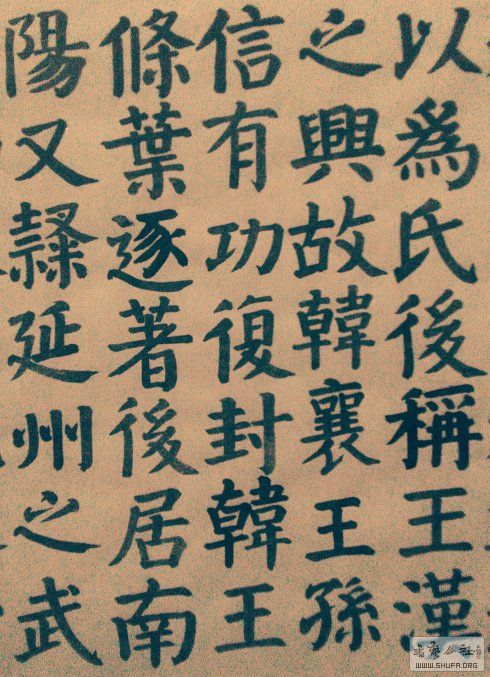 以為氏後稱王漢
之興故韓襄王孫
信有功復封韓王
條葉逐著後居南
陽又隸延州之武
WWW.SHUFA.ORG